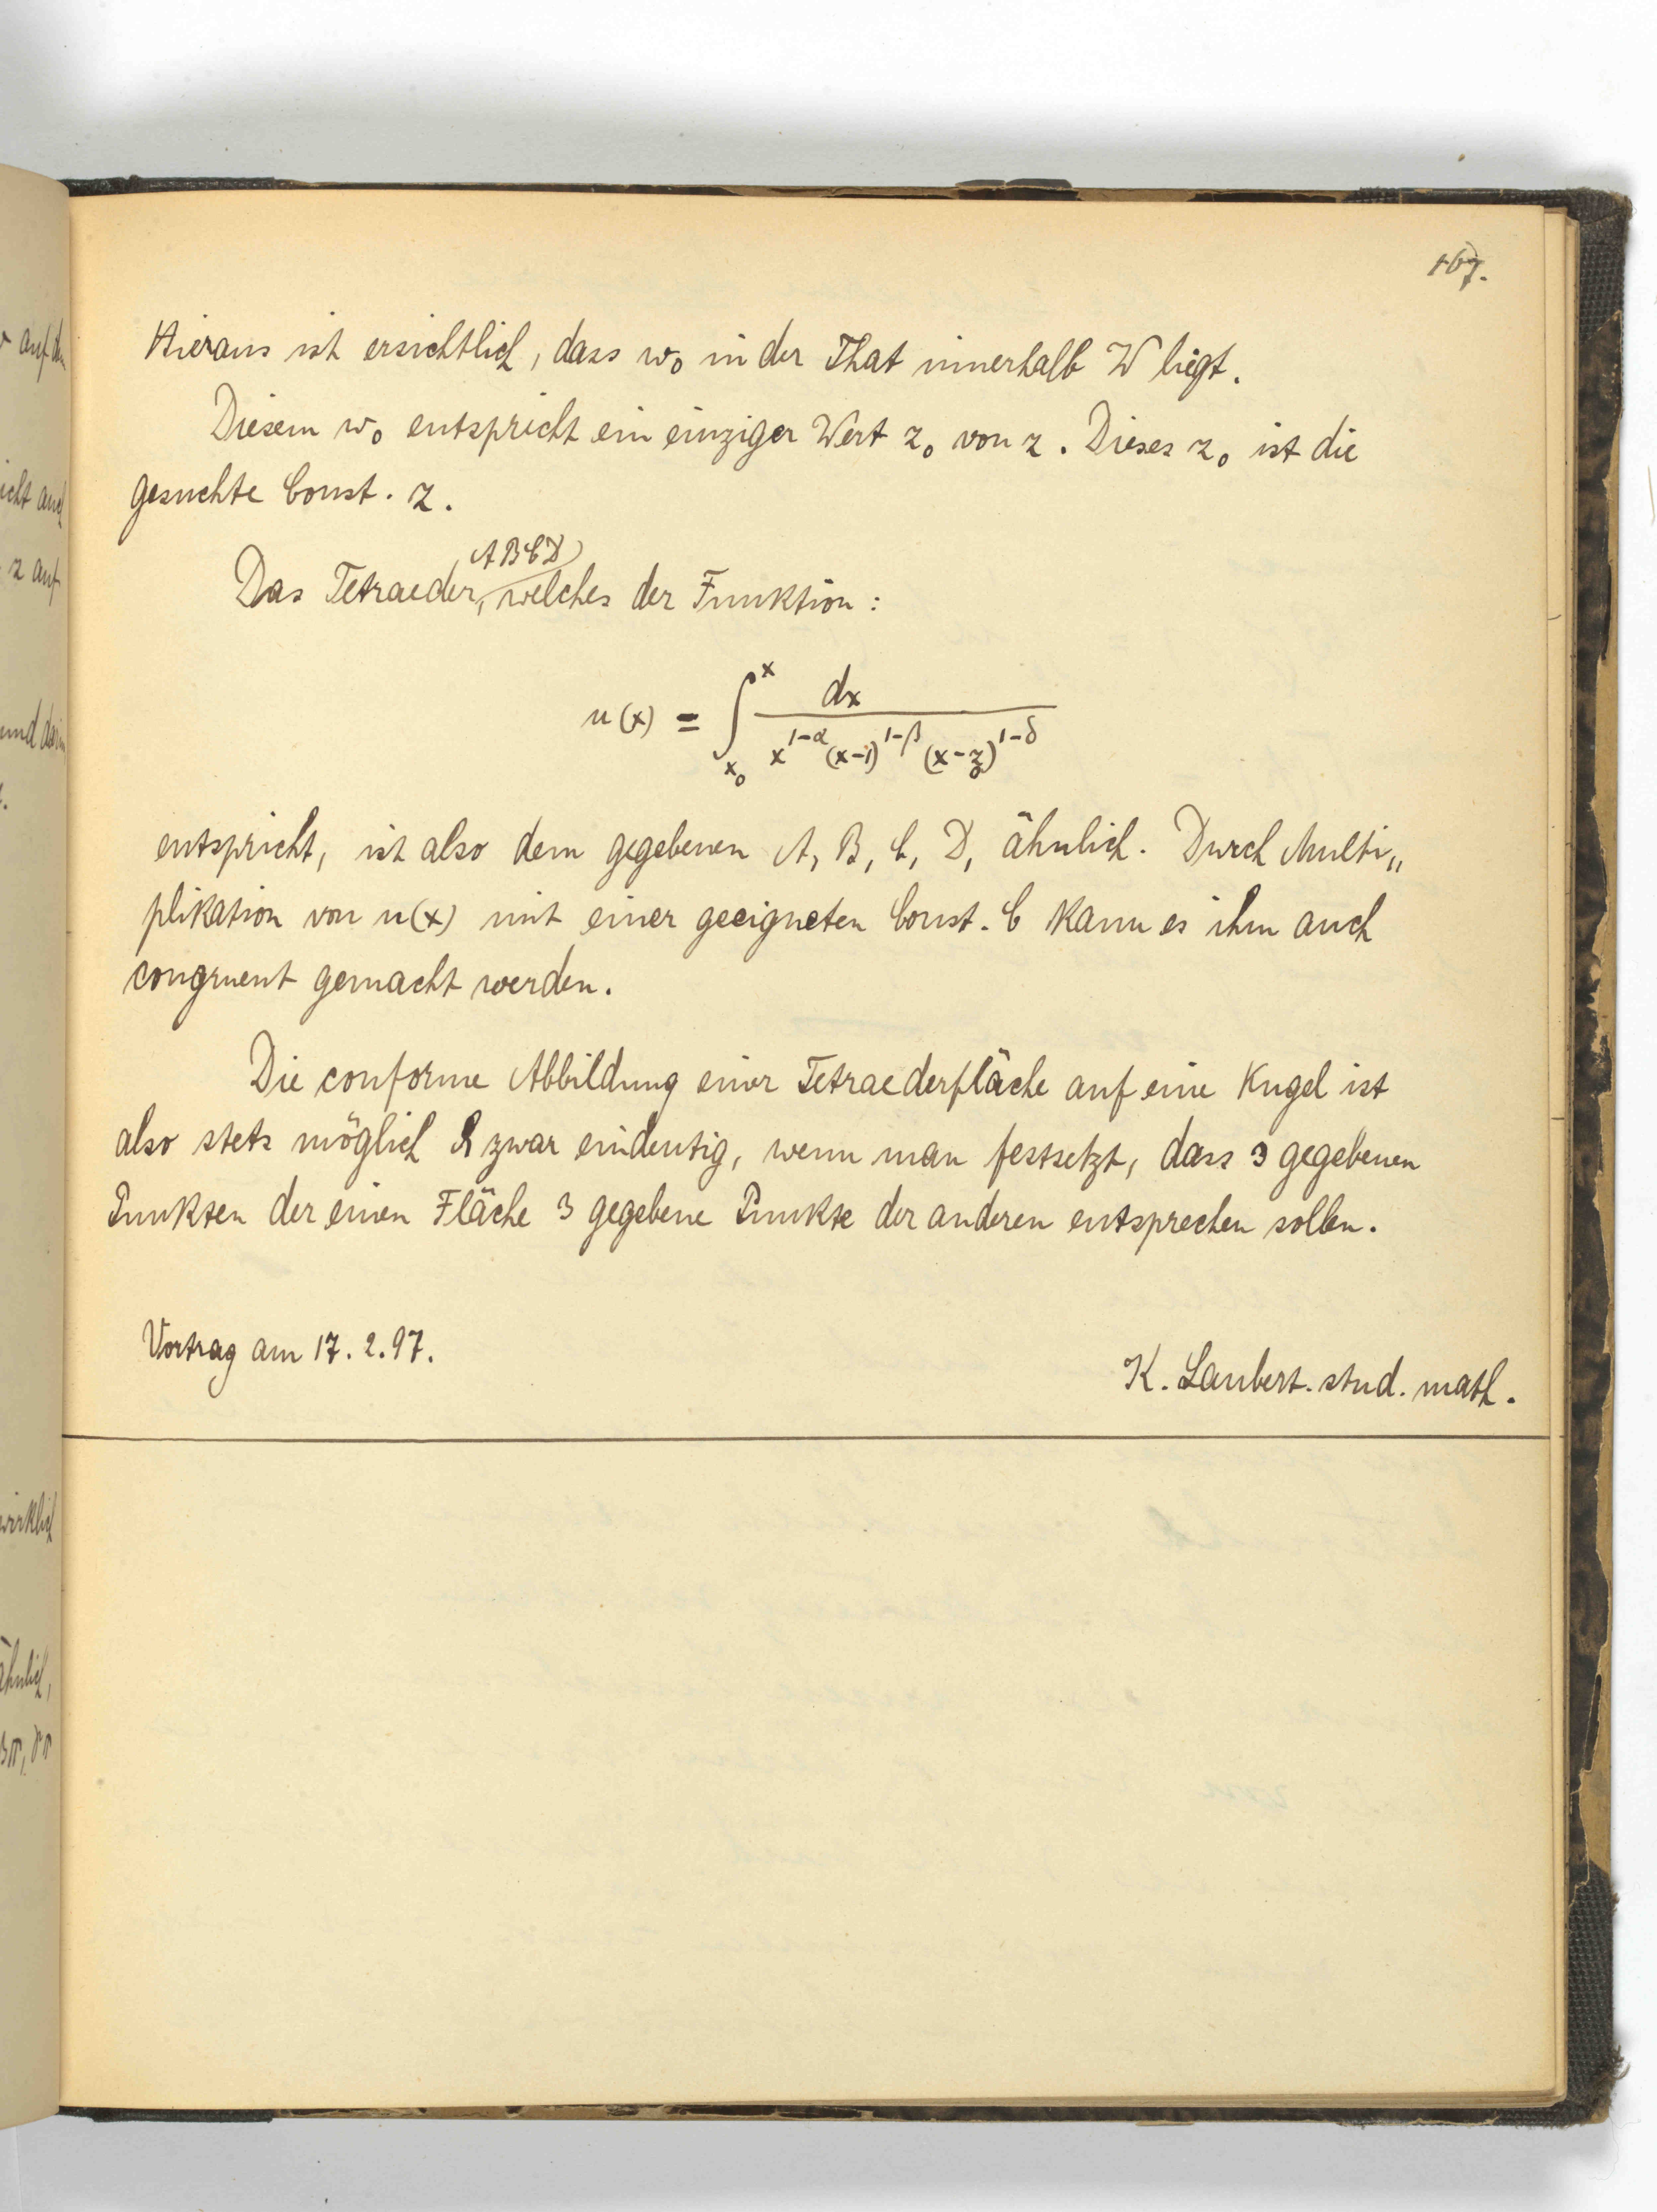 167.
Hieraus ist ersichtlich, dass w₀ in der That innerhalb W liegt.
Diesem w₀ entspricht ein einziger Wert z₀ von z. Dieses z₀ ist die
gesuchte Const. z.
ABCD
Das Tetraeder, welches der Funktion:
u(x) = ∫_{x₀}^{x} dx / (x^{1-α} (x-1)^{1-β} (x-z₀)^{1-δ})
entspricht, ist also dem gegebenen A₁ B₁ C₁ D₁ ähnlich. Durch Multi„
plikation von u(x) mit einer geeigneten Const. C kann es ihm auch
congruent gemacht werden.
Die conforme Abbildung einer Tetraederfläche auf eine Kugel ist
also stets möglich & zwar eindeutig, wenn man festsetzt, dass 3 gegebenen
Punkten der einen Fläche 3 gegebene Punkte der anderen entsprechen sollen.
Vortrag am 17.2.97.
K. Laubert. stud. math.